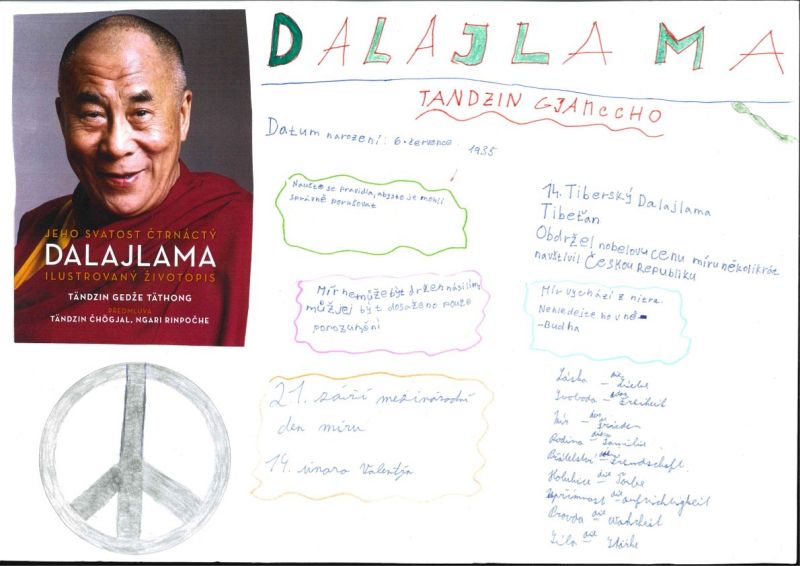 DALAJLAMA
TANDZIN GJAMCCHO
Datum narození: 6. července. 1935
JEHO SVATOST ČTRNÁCTÝ
DALAJLAMA
ILUSTROVANÝ ŽIVOTOPIS
TÄNDZIN GEDŽE TÄTHONG
PŘEDMLUVA
TÄNDZIN ČHÖGJAL, NGARI RINPOČHE
Naučte se pravidla, abyste je mohli
správně porušovat
14. Tiberský Dalajlama
Tibeťan
Obdržel nobelovu cenu míru několikrát
navštívil Českou Republiku
Mír nemůže být držen násilím,
můž jej být dosaženo pouze
porozumění
Mír vychází z nitra.
Nehledejte ho v ně
-Budha
21. září mezinárodní
den míru
14. února Valentýn
Láska - die Liebe
Svoboda - die Freiheit
Mír - der Frieden
Rodina - die Familie
Přátelství - die Freundschaft.
Holubice - die Taube
Upřímnost - die aufrichtigkeit
Pravda - die Wahrheit
Síla - die Stärke